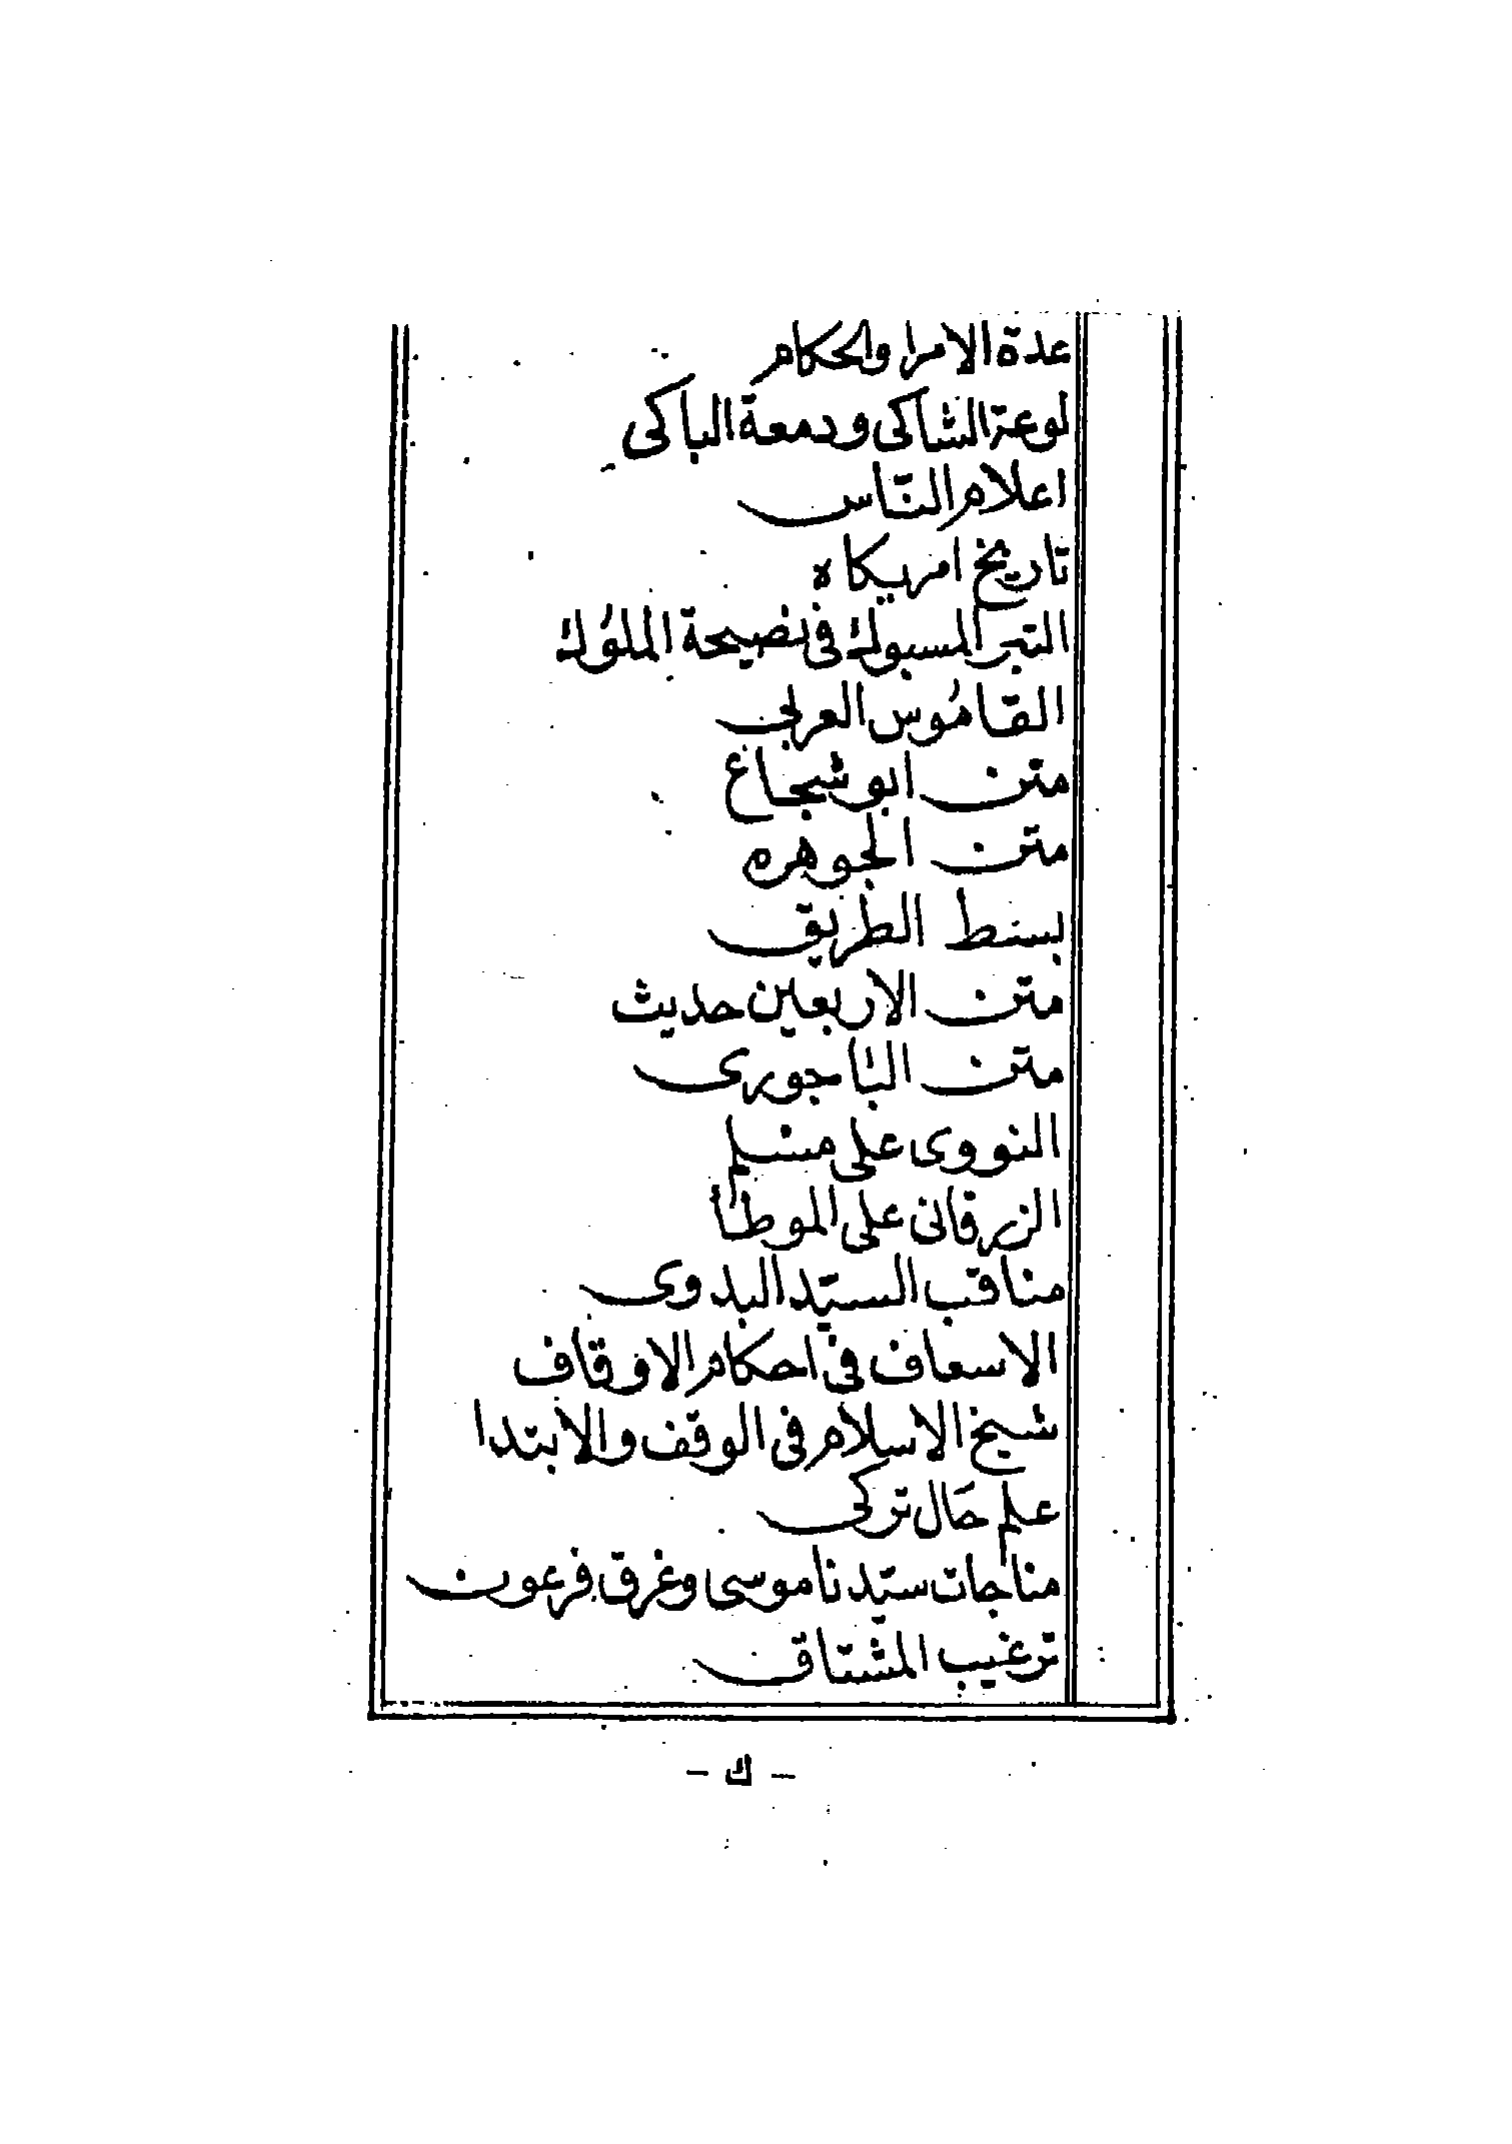 عدة الامرا والحكام
لوعة الشاكى ودمعة الباكى
اعلام النّاس
تاريخ امريكا ه
التبر المسبوك فى نصيحة الملوُك
القامُوس العربى
متن ابو شجاع
متن الجوهره
بسط الطريق
متن الاربعين حديث
متن الباجورى
النووى على مسلم
الزرقانى على الموطأ
مناقب السيّد البدوى
الاسعاف فى احكام الاوقاف
شيخ الاسلام فى الوقف والابتدا
علم حَال تركى
مناجات سيّدنا موسى وغرق فرعون
ترغيب المشتاق
- ك -